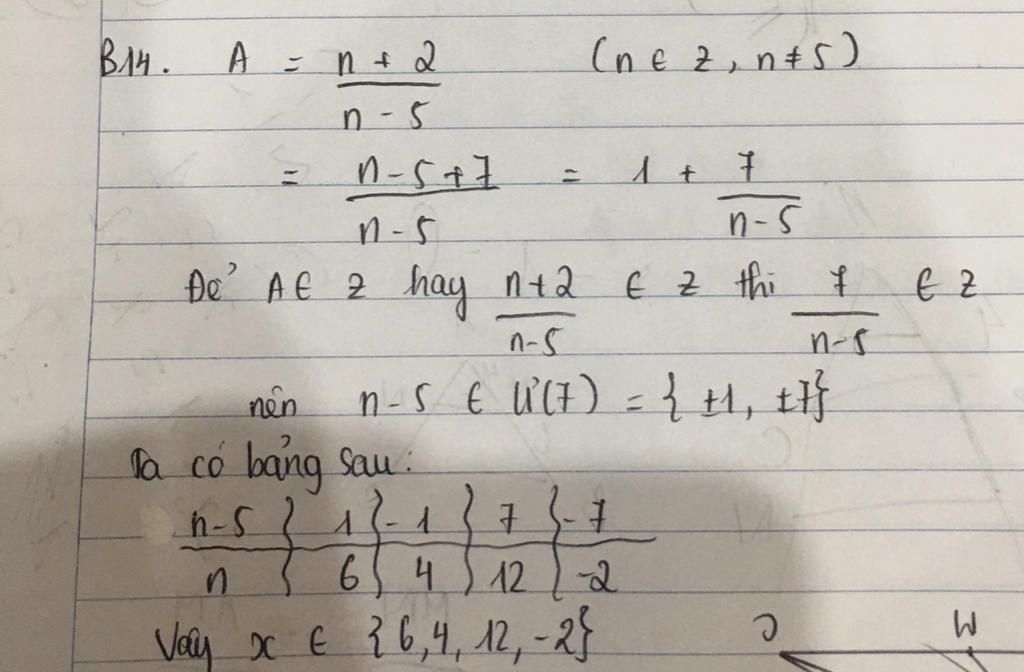 B14. A = n + 2 / n - 5 (n ∈ Z, n ≠ 5)
= n - 5 + 7 / n - 5 = 1 + 7 / n - 5
Để A ∈ Z hay n + 2 / n - 5 ∈ Z thì 7 / n - 5 ∈ Z
nên n - 5 ∈ Ư(7) = { ±1, ±7}
Ta có bảng sau:
n - 5 } 1 } - 1 } 7 } - 7
n } 6 } 4 } 12 } -2
Vậy x ∈ {6, 4, 12, -2}